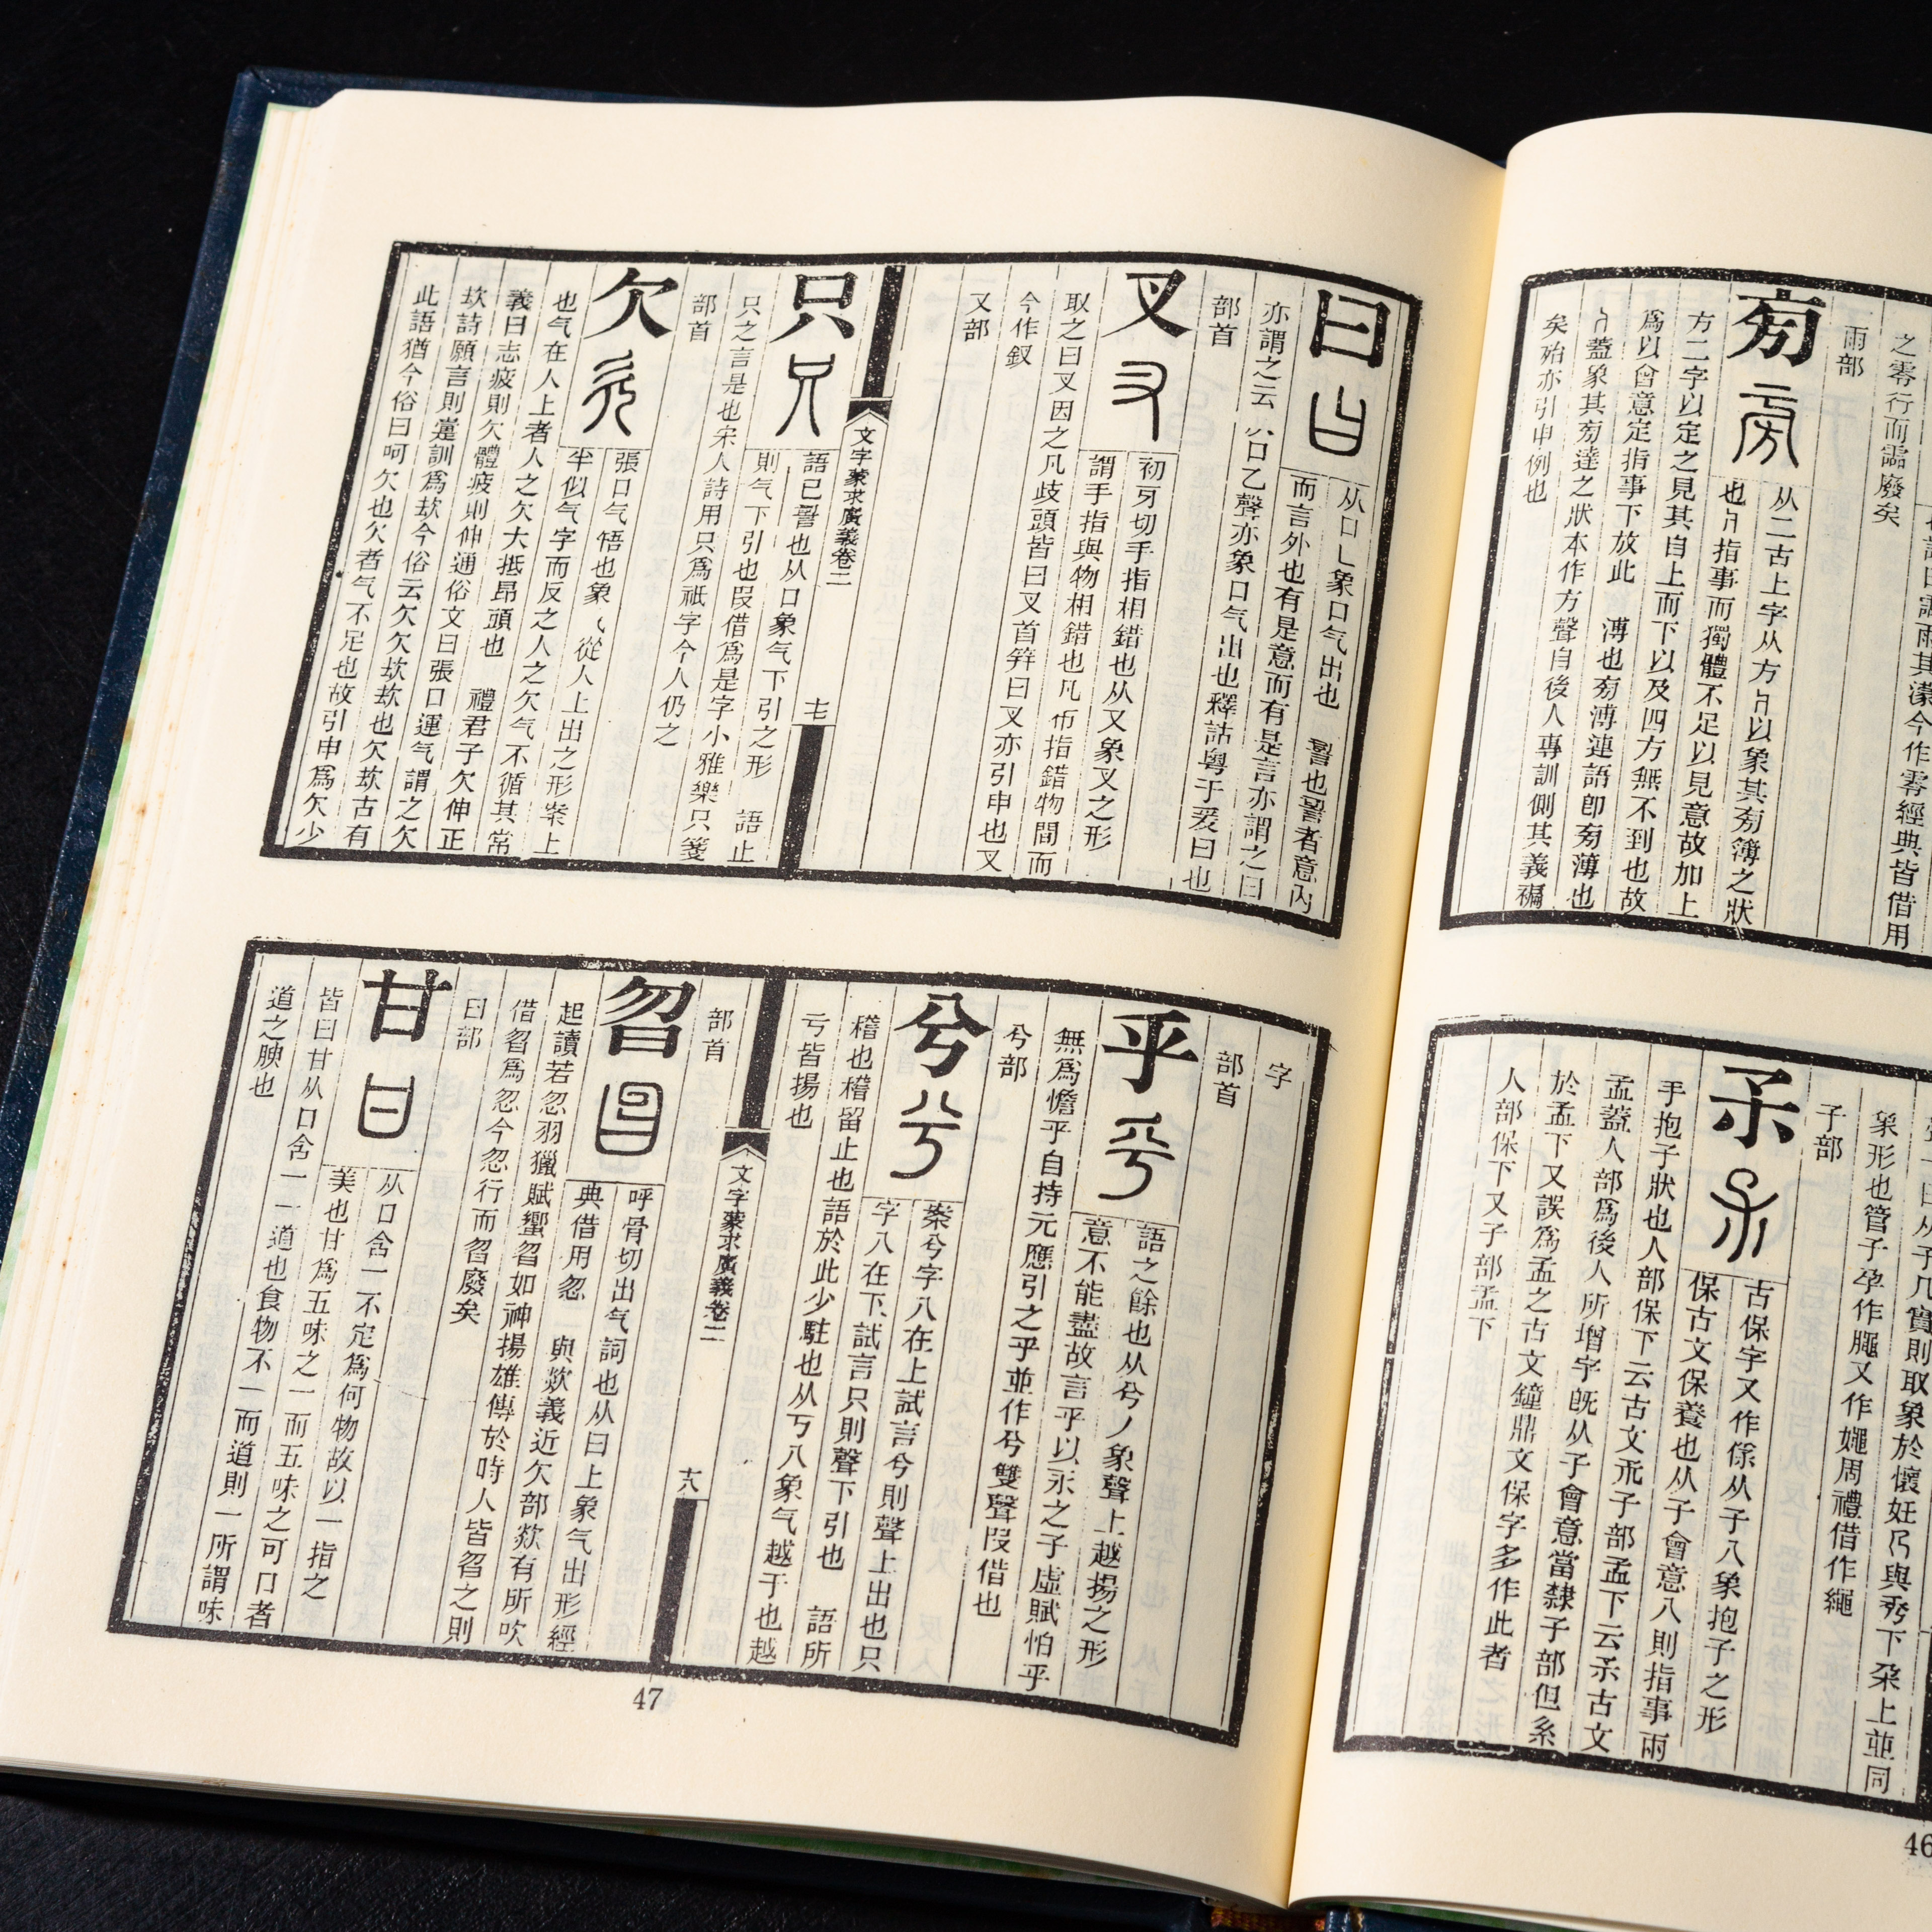 雨其濛今作零經典皆借用
之零行而霝廢矣
雨部
从二古上字从方
以象其㫄簿之狀
也
指事而獨體不足以見意故加上
方二字以定之見其自上而下以及四方無不到也故
爲以會意定指事下放此 溥也㫄溥連語卽㫄薄也
蓋象其㫄達之狀本作方聲自後人專訓側其義褊
矣殆亦引申例也
則取象於懷妊
與
下朶上並同
象形也管子孕作䋲又作嬎周禮借作繩
子部
古保字又作保从子八象抱子之形
保古文保養也从子會意八則指事兩
手抱子狀也人部保下云古文𤓽子部孟下云𤓽古文
孟蓋人部爲後人所增字旣从子會意當隸子部但系
於孟下又誤爲孟之古文鐘鼎文保字多作此者
人部保下又子部孟下
曰
从口乚象口气出也 䛐也䛐者意內
而言外也有是意而有是言亦謂之曰
亦謂之云 从口乙聲亦象口气出也釋詁粵于爰曰也
部首
叉
初牙切手指相錯也从又象叉之形
謂手指與物相錯也凡布指錯物間而
取之曰叉因之凡歧頭皆曰叉首筓曰叉亦引申也叉
今作釵
又部
文字蒙求廣義卷二
十七
只
語已䛐也从口象气下引之形 語止
則气下引也叚借爲是字小雅樂只箋
只之言是也宋人詩用只爲祇字今人仍之
部首
欠
張口气悟也象气從人上出之形案上
半似气字而反之人之欠气不循其常
也气在人上者人之欠大抵昂頭也 禮君子欠伸正
義曰志疲則欠體疲則伸通俗文曰張口運气謂之欠
㰟詩願言則嚏訓爲㰟今俗云欠欠㰟㰟也欠㰟古有
此語猶今俗曰呵欠也欠者气不足也故引申爲欠少
字
部首
乎
語之餘也从兮丿象聲上越揚之形
意不能盡故言乎以永之子虛賦怕乎
無爲憺乎自持元應引之乎並作兮雙聲叚借也
兮部
兮
案兮字八在上試言兮則聲上出也只
字八在下試言只則聲下引也 語所
稽也稽留止也語於此少駐也从丂八象气越于也越
亏皆揚也
部首
文字蒙求廣義卷二
十八
曶
呼骨切出气詞也从曰上象气出形經
典借用忽 一與欻義近欠部欻有所吹
起讀若忽羽獵賦蠁曶如神揚雄傳於時人皆曶之則
借曶爲忽今忽行而曶廢矣
曰部
甘
从口含一不定爲何物故以一指之
美也甘爲五味之一而五味之可口者
皆曰甘从口含一一道也食物不一而道則一所謂味
道之腴也
47
46